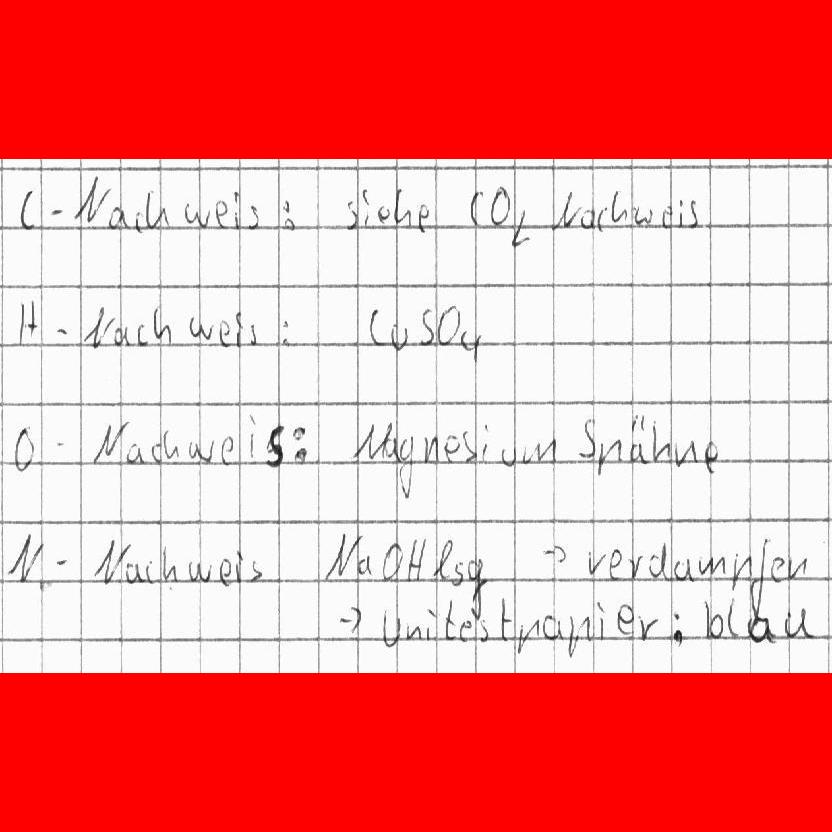 C-Nachweis: siehe CO₂ Nachweis
H-Nachweis: CuSO₄
O-Nachweis: Magnesium Spähne
N-Nachweis NaOH lsg → verdampfen
→ Unitestpapier: blau